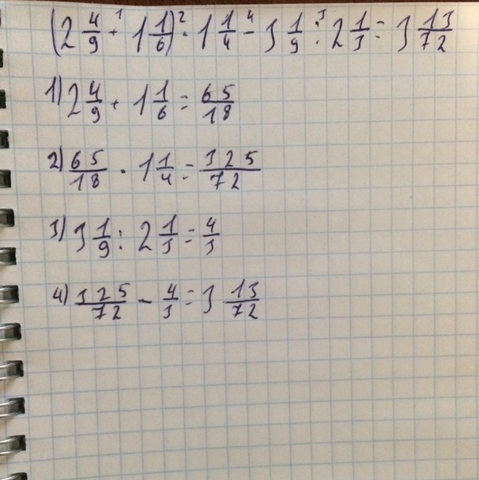 (2 4/9 + 1 1/6) · 1 1/4 - 3 1/9 : 2 1/3 = 3 13/72
1) 2 4/9 + 1 1/6 = 65/18
2) 65/18 · 1 1/4 = 325/72
3) 3 1/9 : 2 1/3 = 4/3
4) 325/72 - 4/3 = 3 13/72